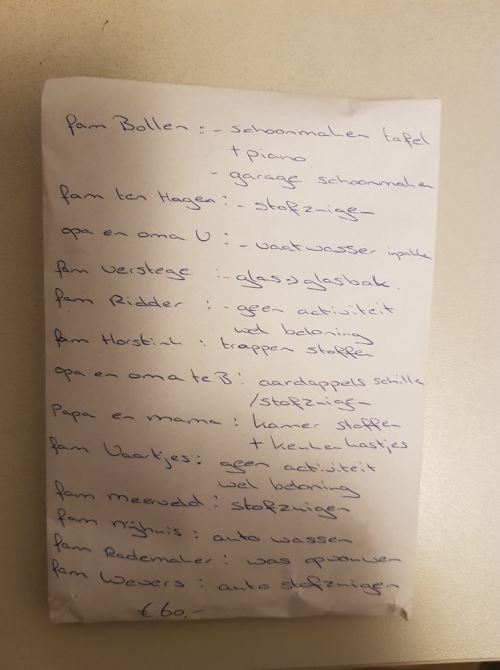 fam Bollen : - schoonmaken tafel
+ piano
- garage schoonmaken
fam ten Hagen : - stofzuigen
opa en oma U : - vaatwasser inpakke
fam Verstege : - glas > glasbak.
fam Ridder : - geen activiteit
wel beloning
fam Horstink : trappen stoffen
opa en oma te B : aardappels schille
/stofzuigen
Papa en mama : kamer stoffen
+ keukenkastjes
fam Vaartjes : geen activiteit
wel beloning
fam meerveld : stofzuigen
fam Nijhuis : auto wassen
fam Rademaker : was opvouwen
fam Wevers : auto stofzuigen
€ 60,-